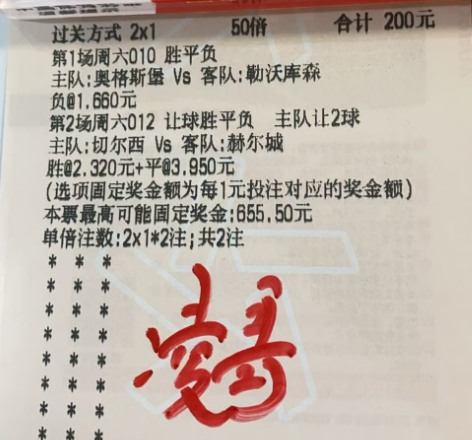 过关方式 2x1 50倍 合计 200元
第1场周六010 胜平负
主队:奥格斯堡 Vs 客队:勒沃库森
负@1.660元
第2场周六012 让球胜平负 主队让2球
主队:切尔西 Vs 客队:赫尔城
胜@2.320元+平@3.950元
(选项固定奖金额为每1元投注对应的奖金额)
本票最高可能固定奖金:655.50元
单倍注数:2x1*2注;共2注
* * *
* * *
* * *
* * *
* * *
* * *
* * *
* * *